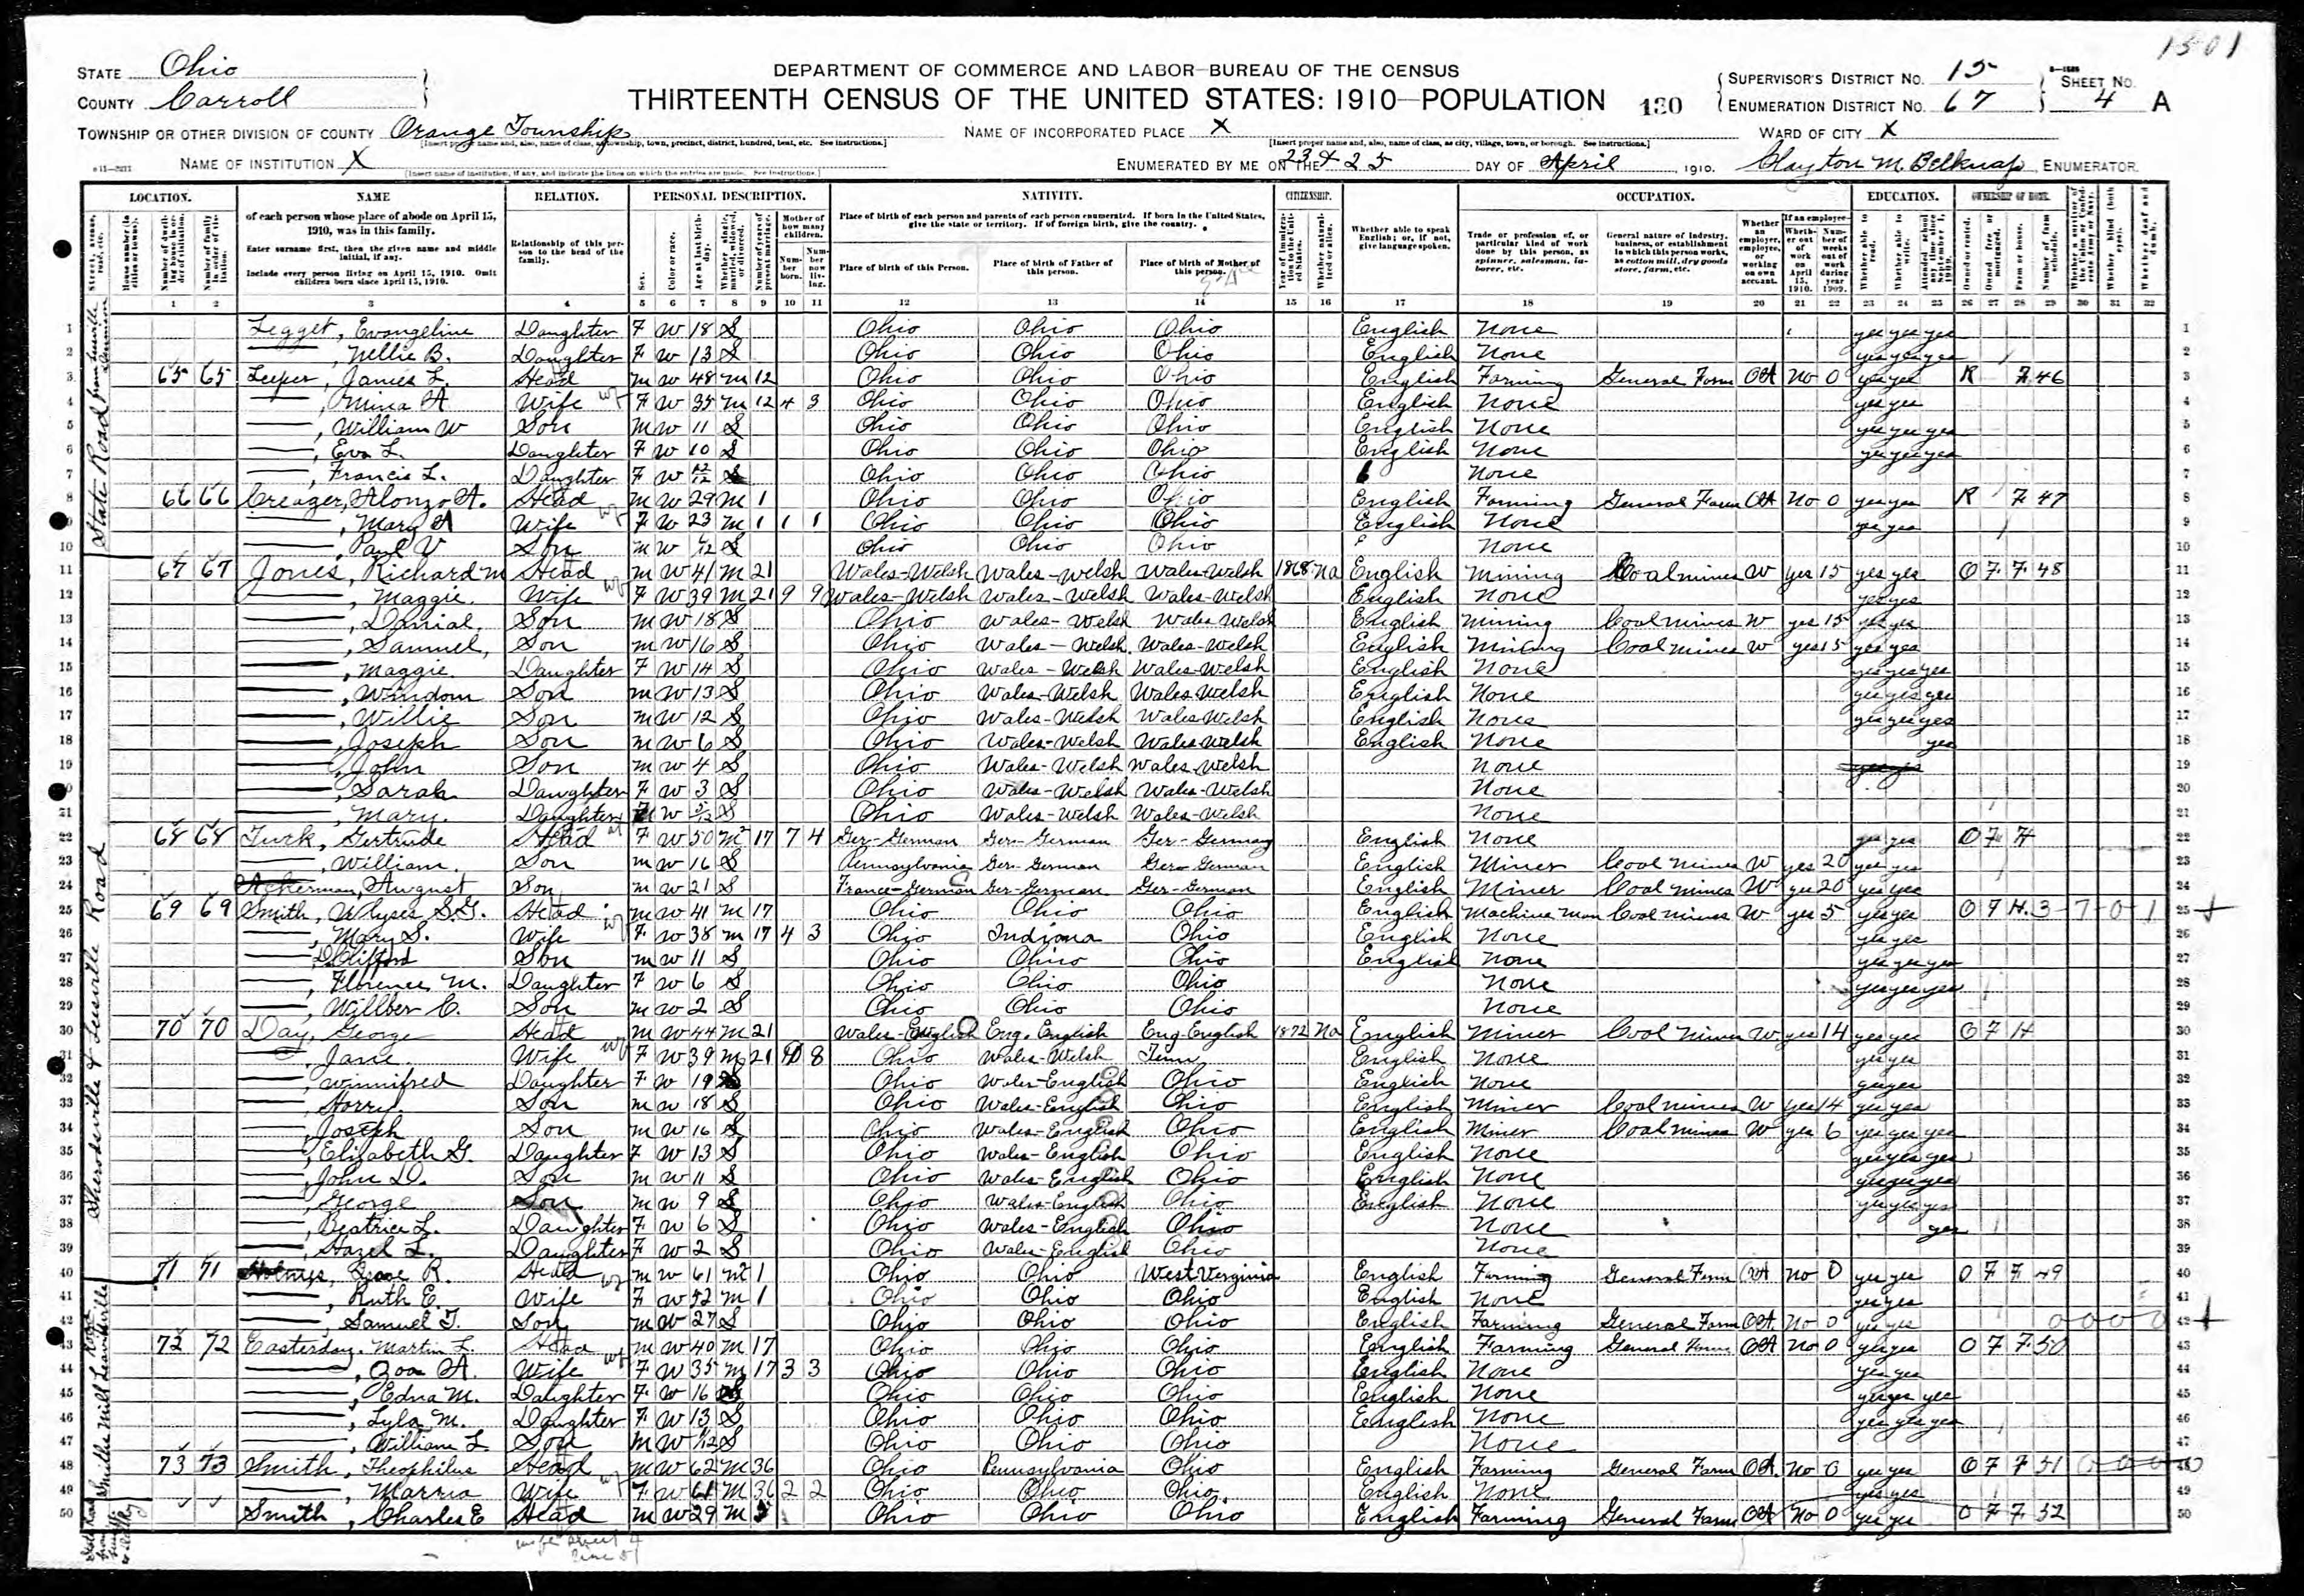 1501
STATE Ohio
COUNTY Carroll
DEPARTMENT OF COMMERCE AND LABOR—BUREAU OF THE CENSUS
THIRTEENTH CENSUS OF THE UNITED STATES: 1910—POPULATION
130
SUPERVISOR'S DISTRICT No. 15
ENUMERATION DISTRICT No. 67
SHEET No. 4 A
TOWNSHIP OR OTHER DIVISION OF COUNTY Orange Township
NAME OF INCORPORATED PLACE X
WARD OF CITY X
NAME OF INSTITUTION X
ENUMERATED BY ME ON THE 23 & 25 DAY OF April, 1910. Clayton M. Belknap, ENUMERATOR.
LOCATION. NAME RELATION. PERSONAL DESCRIPTION. NATIVITY. CITIZENSHIP. OCCUPATION. EDUCATION. OWNERSHIP OF HOME.
of each person whose place of abode on April 15, 1910, was in this family.
Enter surname first, then the given name and middle initial, if any.
Include every person living on April 15, 1910. Omit children born since April 15, 1910.
Relationship of this person to the head of the family.
Place of birth of each person and parents of each person enumerated. If born in the United States, give the state or territory. If of foreign birth, give the country.
Place of birth of this Person. Place of birth of Father of this person. Place of birth of Mother of this person.
Whether able to speak English; or, if not, give language spoken.
Trade or profession of, or particular kind of work done by this person, as spinner, salesman, laborer, etc.
General nature of industry, business, or establishment in which this person works, as cotton mill, dry goods store, farm, etc.
1 2 3 4 5 6 7 8 9 10 11 12 13 14 15 16 17 18 19 20 21 22 23 24 25 26 27 28 29 30 31 32
1 Legget, Evangeline Daughter F W 18 S Ohio Ohio Ohio English None yes yes yes
2 ——, Nellie B. Daughter F W 13 S Ohio Ohio Ohio English None yes yes yes
3 65 65 Leeper, James L. Head M W 48 M 12 Ohio Ohio Ohio English Farming General Farm OA No 0 yes yes R F 46
4 ——, Mina A Wife F W 35 M 12 4 3 Ohio Ohio Ohio English None yes yes
5 ——, William W Son M W 11 S Ohio Ohio Ohio English None yes yes yes
6 ——, Eva L. Daughter F W 10 S Ohio Ohio Ohio English None yes yes yes
7 ——, Francis L. Daughter F W S Ohio Ohio Ohio None
8 66 66 Creager, Alonzo A. Head M W 29 M 1 Ohio Ohio Ohio English Farming General Farm OA No 0 yes yes R F 47
9 ——, Mary A Wife F W 23 M 1 1 1 Ohio Ohio Ohio English None yes yes
10 ——, Paul V Son M W S Ohio Ohio Ohio None
11 67 67 Jones, Richard M Head M W 41 M 21 Wales-Welsh Wales-Welsh Wales-Welsh 1868 Na English Mining Coal mines W yes 15 yes yes O F F 48
12 ——, Maggie. Wife F W 39 M 21 9 9 Wales-Welsh Wales-Welsh Wales-Welsh English None yes yes
13 ——, Danial, Son M W 18 S Ohio Wales-Welsh Wales Welsh English Mining Coal mines W yes 15 yes yes
14 ——, Samuel, Son M W 16 S Ohio Wales-Welsh Wales-Welsh English Mining Coal mines W yes 15 yes yes
15 ——, Maggie Daughter F W 14 S Ohio Wales-Welsh Wales-Welsh English None yes yes yes
16 ——, Windom Son M W 13 S Ohio Wales-Welsh Wales Welsh English None yes yes yes
17 ——, Willie Son M W 12 S Ohio Wales-Welsh Wales-Welsh English None yes yes yes
18 ——, Joseph Son M W 6 S Ohio Wales-Welsh Wales Welsh English None yes
19 ——, John Son M W 4 S Ohio Wales-Welsh Wales Welsh None
20 ——, Sarah Daughter F W 3 S Ohio Wales-Welsh Wales-Welsh None
21 ——, Mary. Daughter F W S Ohio Wales-Welsh Wales-Welsh None
22 68 68 Turk, Gertrude Head F W 50 M2 17 7 4 Ger-German Ger-German Ger-German English None yes yes O F H
23 ——, William. Son M W 16 S Pennsylvania Ger-German Ger-German English Miner Coal mines W yes 20 yes yes
24 Acherman, August Son M W 21 S France-German Ger-German Ger-German English Miner Coal mines W yes 20 yes yes
25 69 69 Smith, Ulyses S.G. Head M W 41 M 17 Ohio Ohio Ohio English Machine man Coal mines W yes 5 yes yes O F H. 3-7-0-1
26 ——, Mary S. Wife F W 38 M 17 4 3 Ohio Indiana Ohio English None yes yes
27 ——, D Clifford Son M W 11 S Ohio Ohio Ohio English None yes yes yes
28 ——, Florence M. Daughter F W 6 S Ohio Ohio Ohio None yes yes yes
29 ——, Willber C. Son M W 2 S Ohio Ohio Ohio None
30 70 70 Day, George Head M W 44 M 21 Wales-English Eng. English Eng-English 1872 Na English Miner Coal Mines W yes 14 yes yes O F H
31 ——, Jane. Wife F W 39 M 21 10 8 Ohio Wales-Welsh Tenn English None yes yes
32 ——, Winnifred Daughter F W 19 S Ohio Wales-English Ohio English None yes yes
33 ——, Harry. Son M W 18 S Ohio Wales-English Ohio English Miner Coal mines W yes 14 yes yes
34 ——, Joseph Son M W 16 S Ohio Wales-English Ohio English Miner Coal mines W yes 6 yes yes yes
35 ——, Elizabeth G. Daughter F W 13 S Ohio Wales-English Ohio English None yes yes yes
36 ——, John D. Son M W 11 S Ohio Wales-English Ohio English None yes yes yes
37 ——, George Son M W 9 S Ohio Wales-English Ohio English None yes yes yes
38 ——, Beatrice L. Daughter F W 6 S Ohio Wales-English Ohio None yes
39 ——, Hazel L. Daughter F W 2 S Ohio Wales-English Ohio None
40 71 71 Holmes, R. Head M W 61 M2 1 Ohio Ohio West Verginia English Farming General Farm OA No 0 yes yes O F F 49
41 ——, Ruth E. Wife F W 52 M 1 Ohio Ohio Ohio English None yes yes
42 ——, Samuel T. Son M W 27 S Ohio Ohio Ohio English Farming General Farm OA No 0 yes yes 0 0 0 0
43 72 72 Easterday, Martin L. Head M W 40 M 17 Ohio Ohio Ohio English Farming General Farm OA No 0 yes yes O F F 50
44 ——, Zoa A. Wife F W 35 M 17 3 3 Ohio Ohio Ohio English None yes yes
45 ——, Edna M. Daughter F W 16 S Ohio Ohio Ohio English None yes yes yes
46 ——, Lyla M. Daughter F W 13 S Ohio Ohio Ohio English None yes yes yes
47 ——, William L Son M W S Ohio Ohio Ohio None
48 73 73 Smith, Theophilus Head M W 62 M 36 Ohio Pennsylvania Ohio English Farming General Farm OA. No 0 yes yes O F F 51
49 ——, Marria Wife F W 61 M 36 2 2 Ohio Ohio Ohio English None yes yes
50 Smith, Charles E Head M W 29 M Ohio Ohio Ohio English Farming General Farm OA No 0 yes yes O F F 52
Sherodsville & Leesville Road